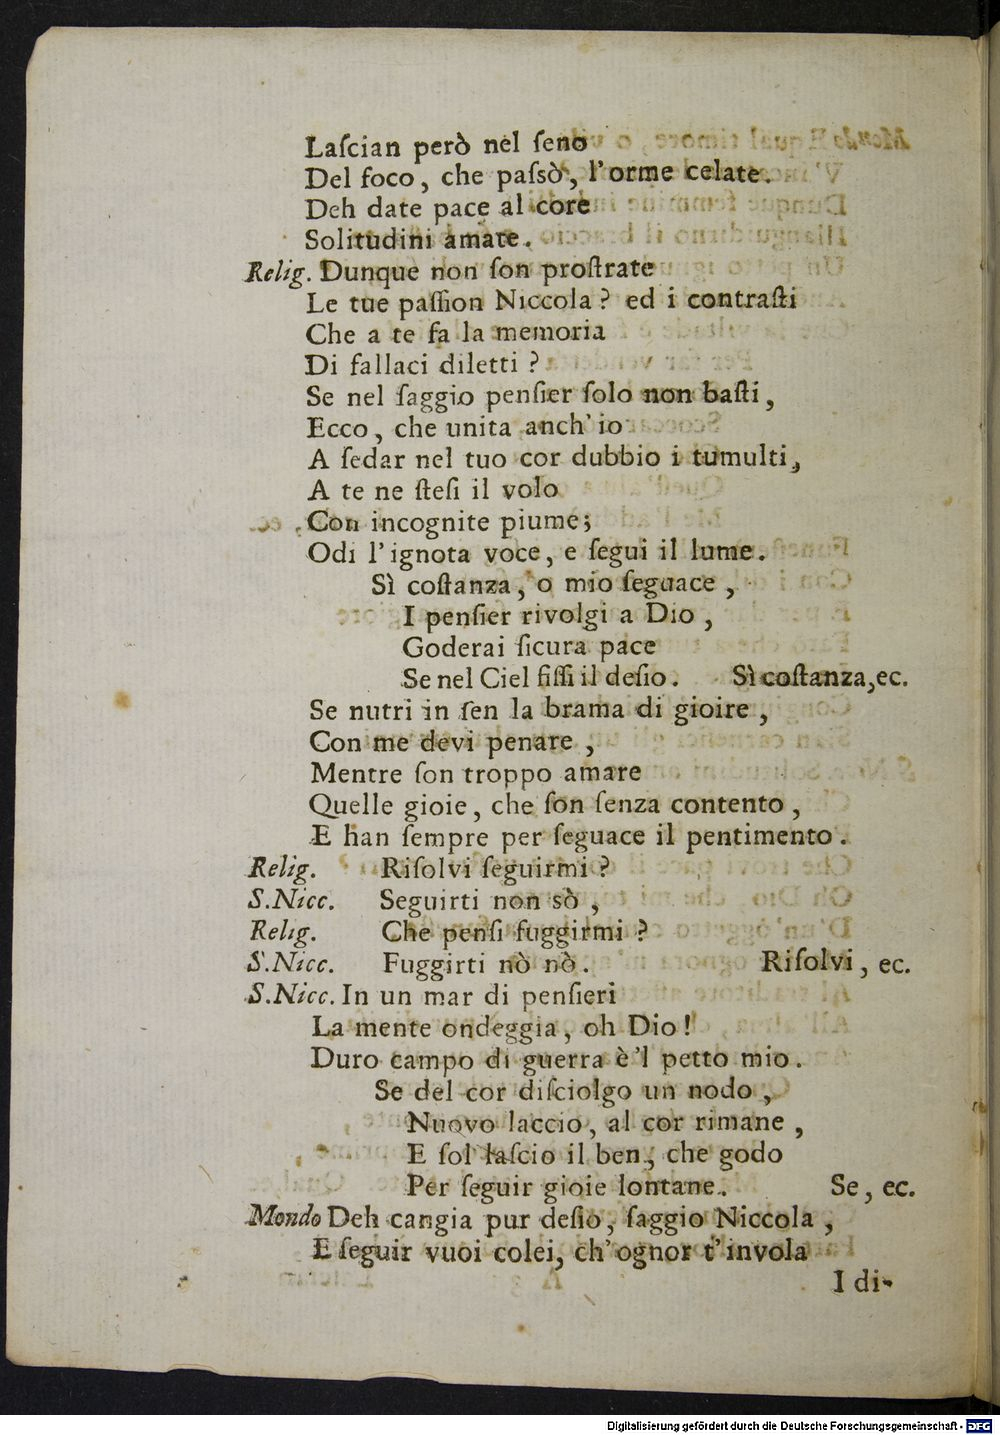 Laſcian però nel ſeno
Del foco, che paſsò, l'orme celate.
Deh date pace al core
Solitudini amate.
Relig. Dunque non ſon proſtrate
Le tue paſſion Niccola? ed i contraſti
Che a te fa la memoria
Di fallaci diletti?
Se nel ſaggio penſier ſolo non baſti,
Ecco, che unita anch'io
A ſedar nel tuo cor dubbio i tumulti,
A te ne ſteſi il volo
Con incognite piume;
Odi l'ignota voce, e ſegui il lume.
Sì coſtanza, o mio ſeguace,
I penſier rivolgi a Dio,
Goderai ſicura pace
Se nel Ciel fiſſi il deſio. Sì coſtanza, ec.
Se nutri in ſen la brama di gioire,
Con me devi penare,
Mentre ſon troppo amare
Quelle gioie, che ſon ſenza contento,
E han ſempre per ſeguace il pentimento.
Relig. Riſolvi ſeguirmi?
S.Nicc. Seguirti non sò,
Relig. Che penſi fuggirmi?
S.Nicc. Fuggirti nò nò. Riſolvi, ec.
S.Nicc. In un mar di penſieri
La mente ondeggia, oh Dio!
Duro campo di guerra è'l petto mio.
Se del cor diſciolgo un nodo,
Nuovo laccio, al cor rimane,
E ſol laſcio il ben, che godo
Per ſeguir gioie lontane. Se, ec.
Mondo Deh cangia pur deſio, ſaggio Niccola,
E ſeguir vuoi colei, ch'ognor t'invola
I di-
Digitalisierung gefördert durch die Deutsche Forschungsgemeinschaft - DFG